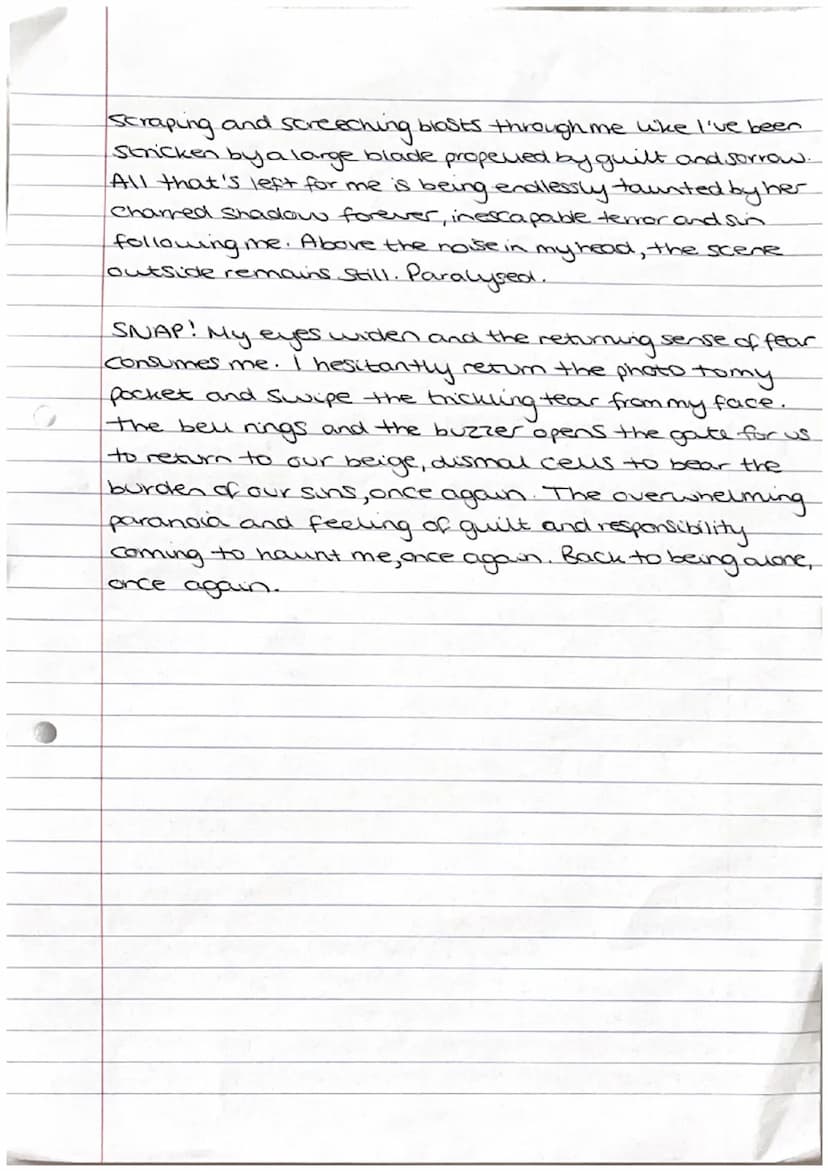 Scraping and screeching blasts through me like I've been
stricken by a large blade propelled by guilt and sorrow.
All that's left for me is being endlessly taunted by her
charred shadow forever, inescapable terror and sin
following me. Above the noise in my head, the scene
outside remains still. Paralysed.
SNAP! My eyes widen and the returning sense of fear
consumes me. I hesitantly return the photo to my
pocket and swipe the trickling tear from my face.
The bell rings and the buzzer opens the gate for us
to return to our beige, dismal cells to bear the
burden of our sins, once again. The overwhelming
paranoia and feeling of guilt and responsibility
coming to haunt me, once again. Back to being alone,
once again.